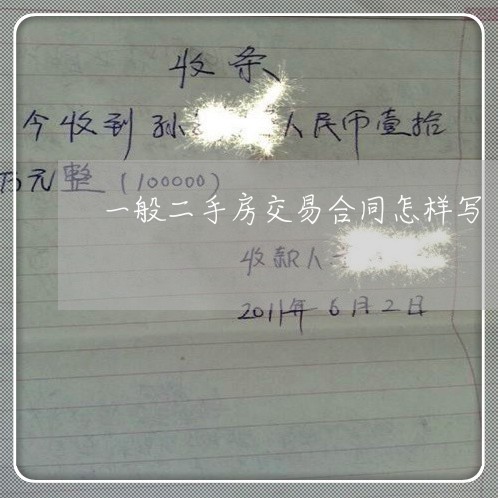 收条
今收到孙 人民币壹拾
万元整（100000）
一般二手房交易合同怎样写
收款人
2011年6月2日